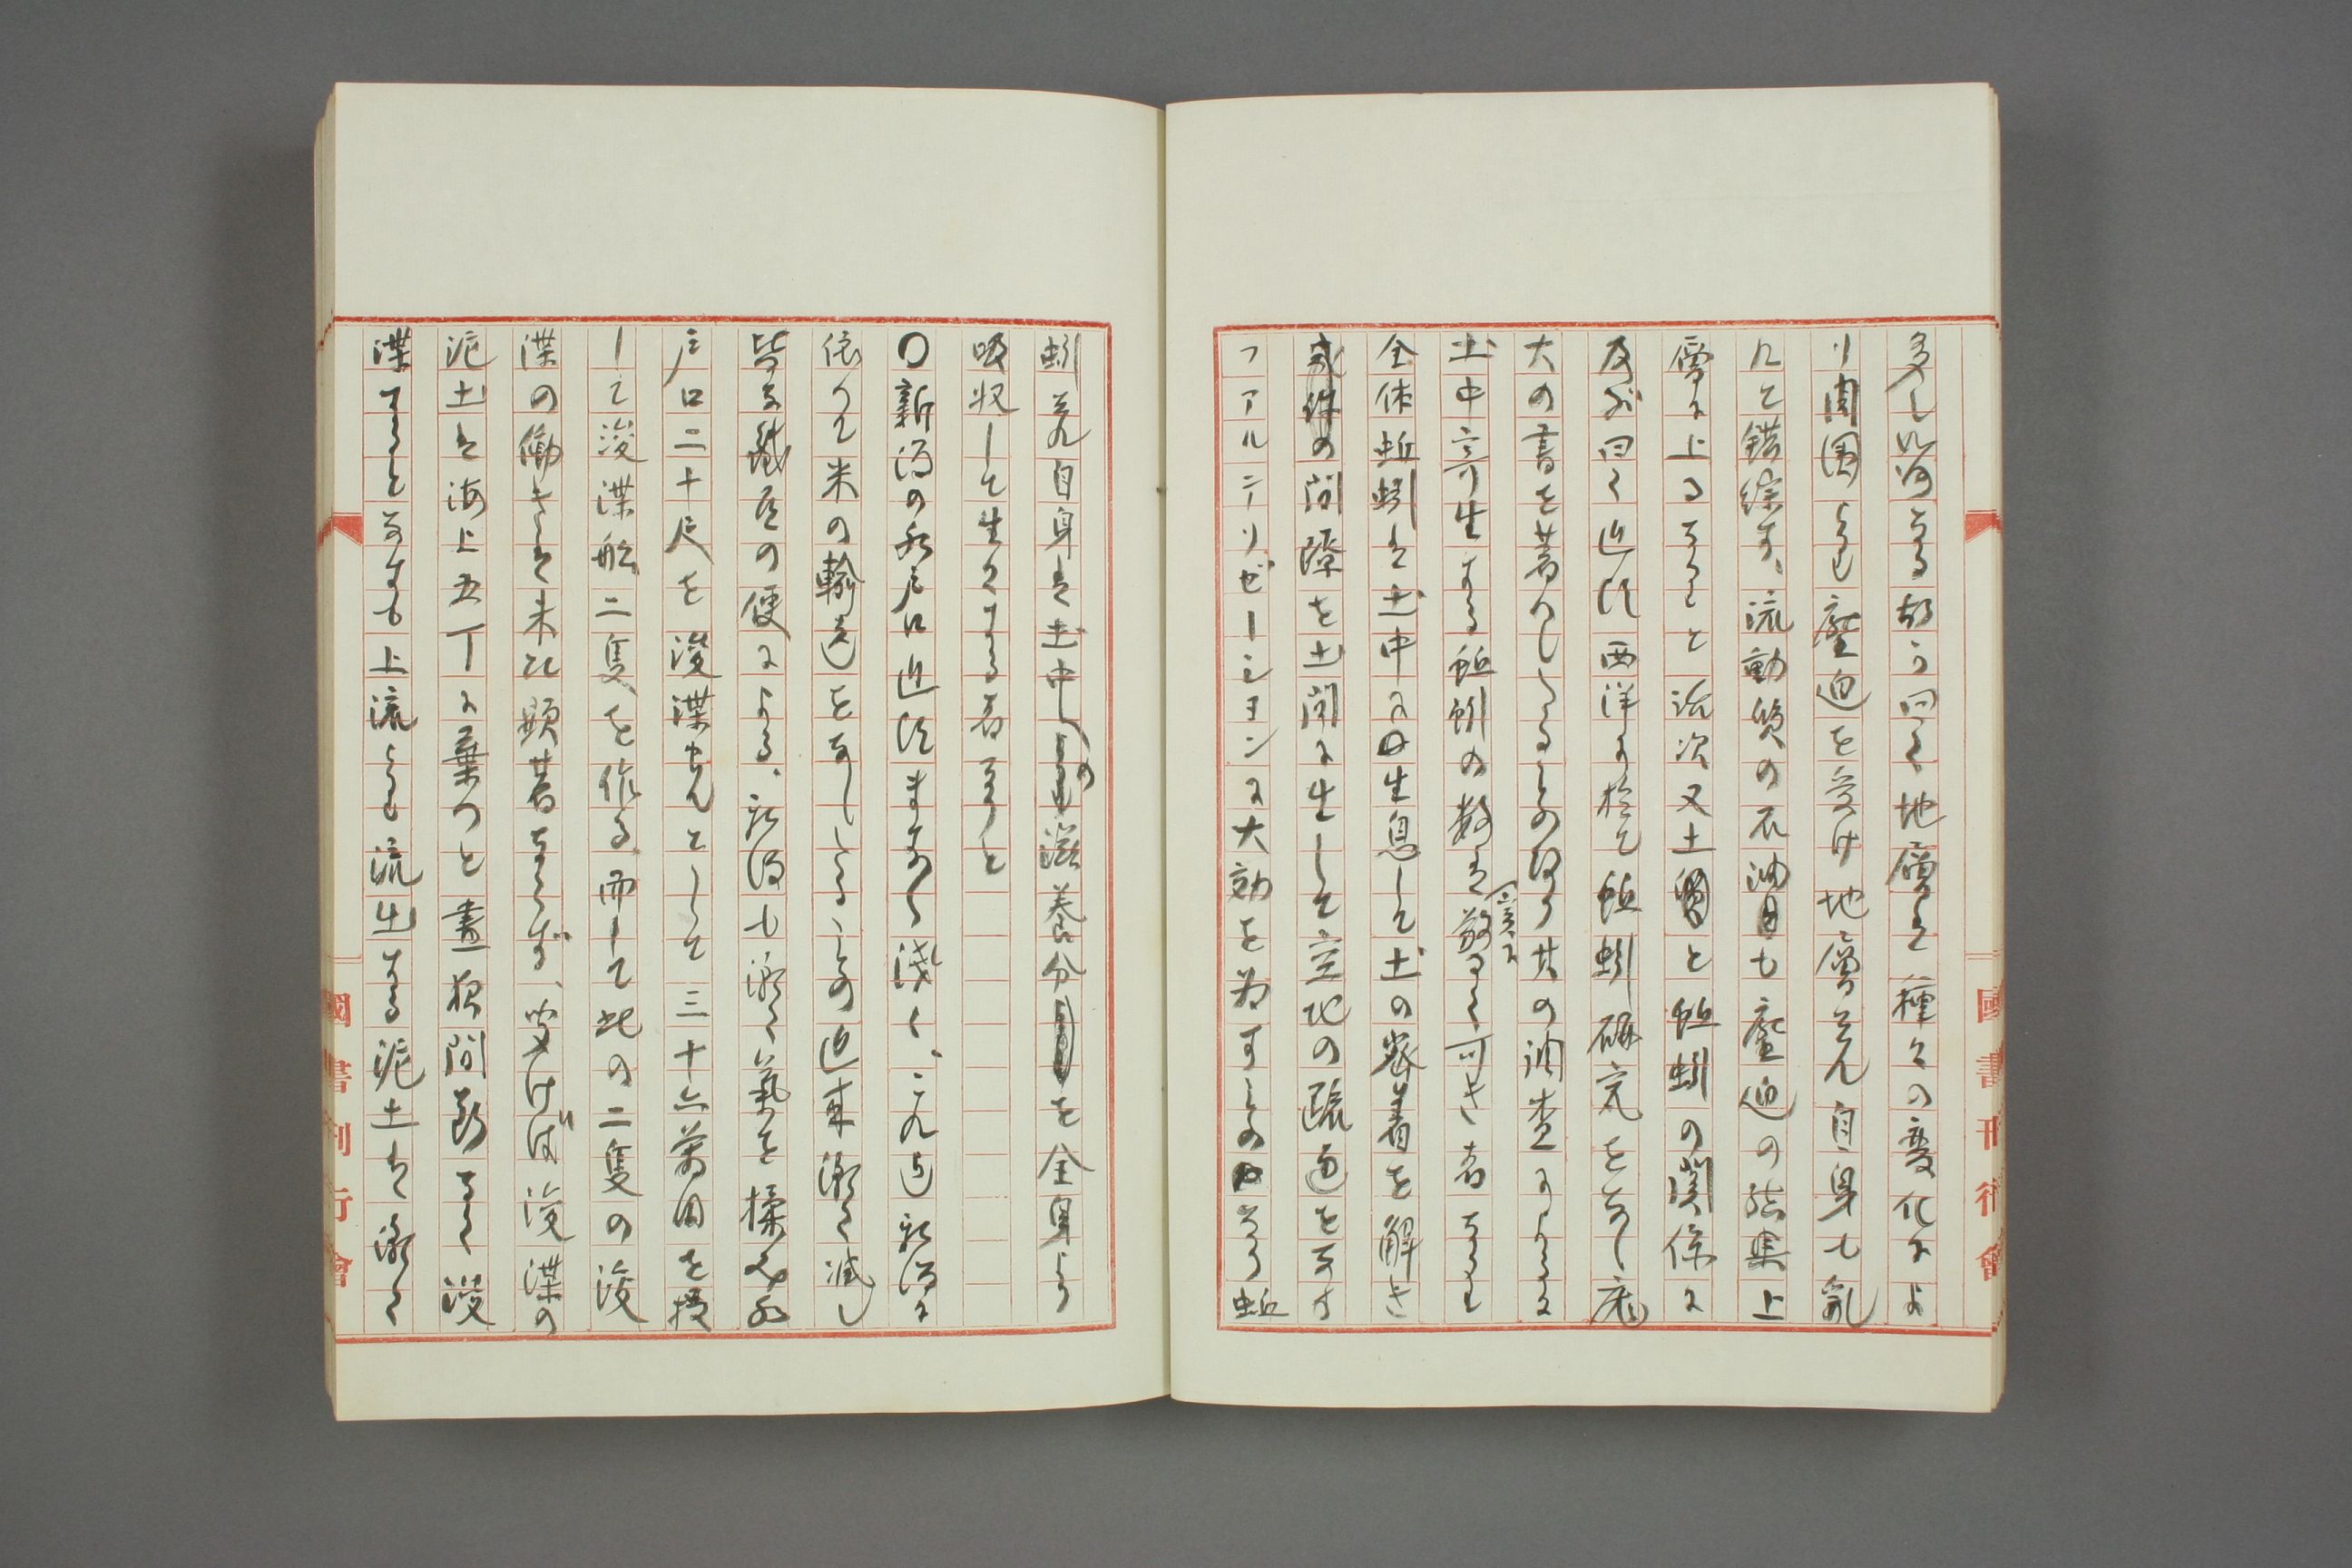 多し如何なる故か曰く地層は種々の変化によ
り周囲より壓迫を受け地層夫れ自身も乱
れて錯綜す、流動質の石油も壓迫の結果上
層に上るなりと話次又土質と蚯蚓の関係に
及ぶ曰く近頃西洋に於て蚯蚓研究をなし尨
大の書を著わしたるものあり其の調査によるに
土中寄生する蚯蚓の数は実に驚くべき者なりと
全体蚯蚓は土中に生息して土の密着を解き
の間隙を土間に生して空地の疏通をなす
ファルニーリゼーションに大効を為すものなり蚯
蚓夫れ自身は土中の滋養分を全身より
吸収して生々する者なりと
〇新潟の水戸口近頃ますます浅く、これ迄新潟に
依りて米の輸送をなしたるもの近来漸く減し
皆な鐵道の便による、新潟も漸く氣を揉み水
戸口二十尺を浚渫せんとして三十六萬円を投
して浚渫船二隻を作る而して此の二隻の浚
渫の働きは未だ顕著ならず、聞けば浚渫の
泥土は海上五丁に棄つと晝夜間断なく浚
渫すると雖も上流より流出する泥土は漸く
國書刊行會
國書刊行會